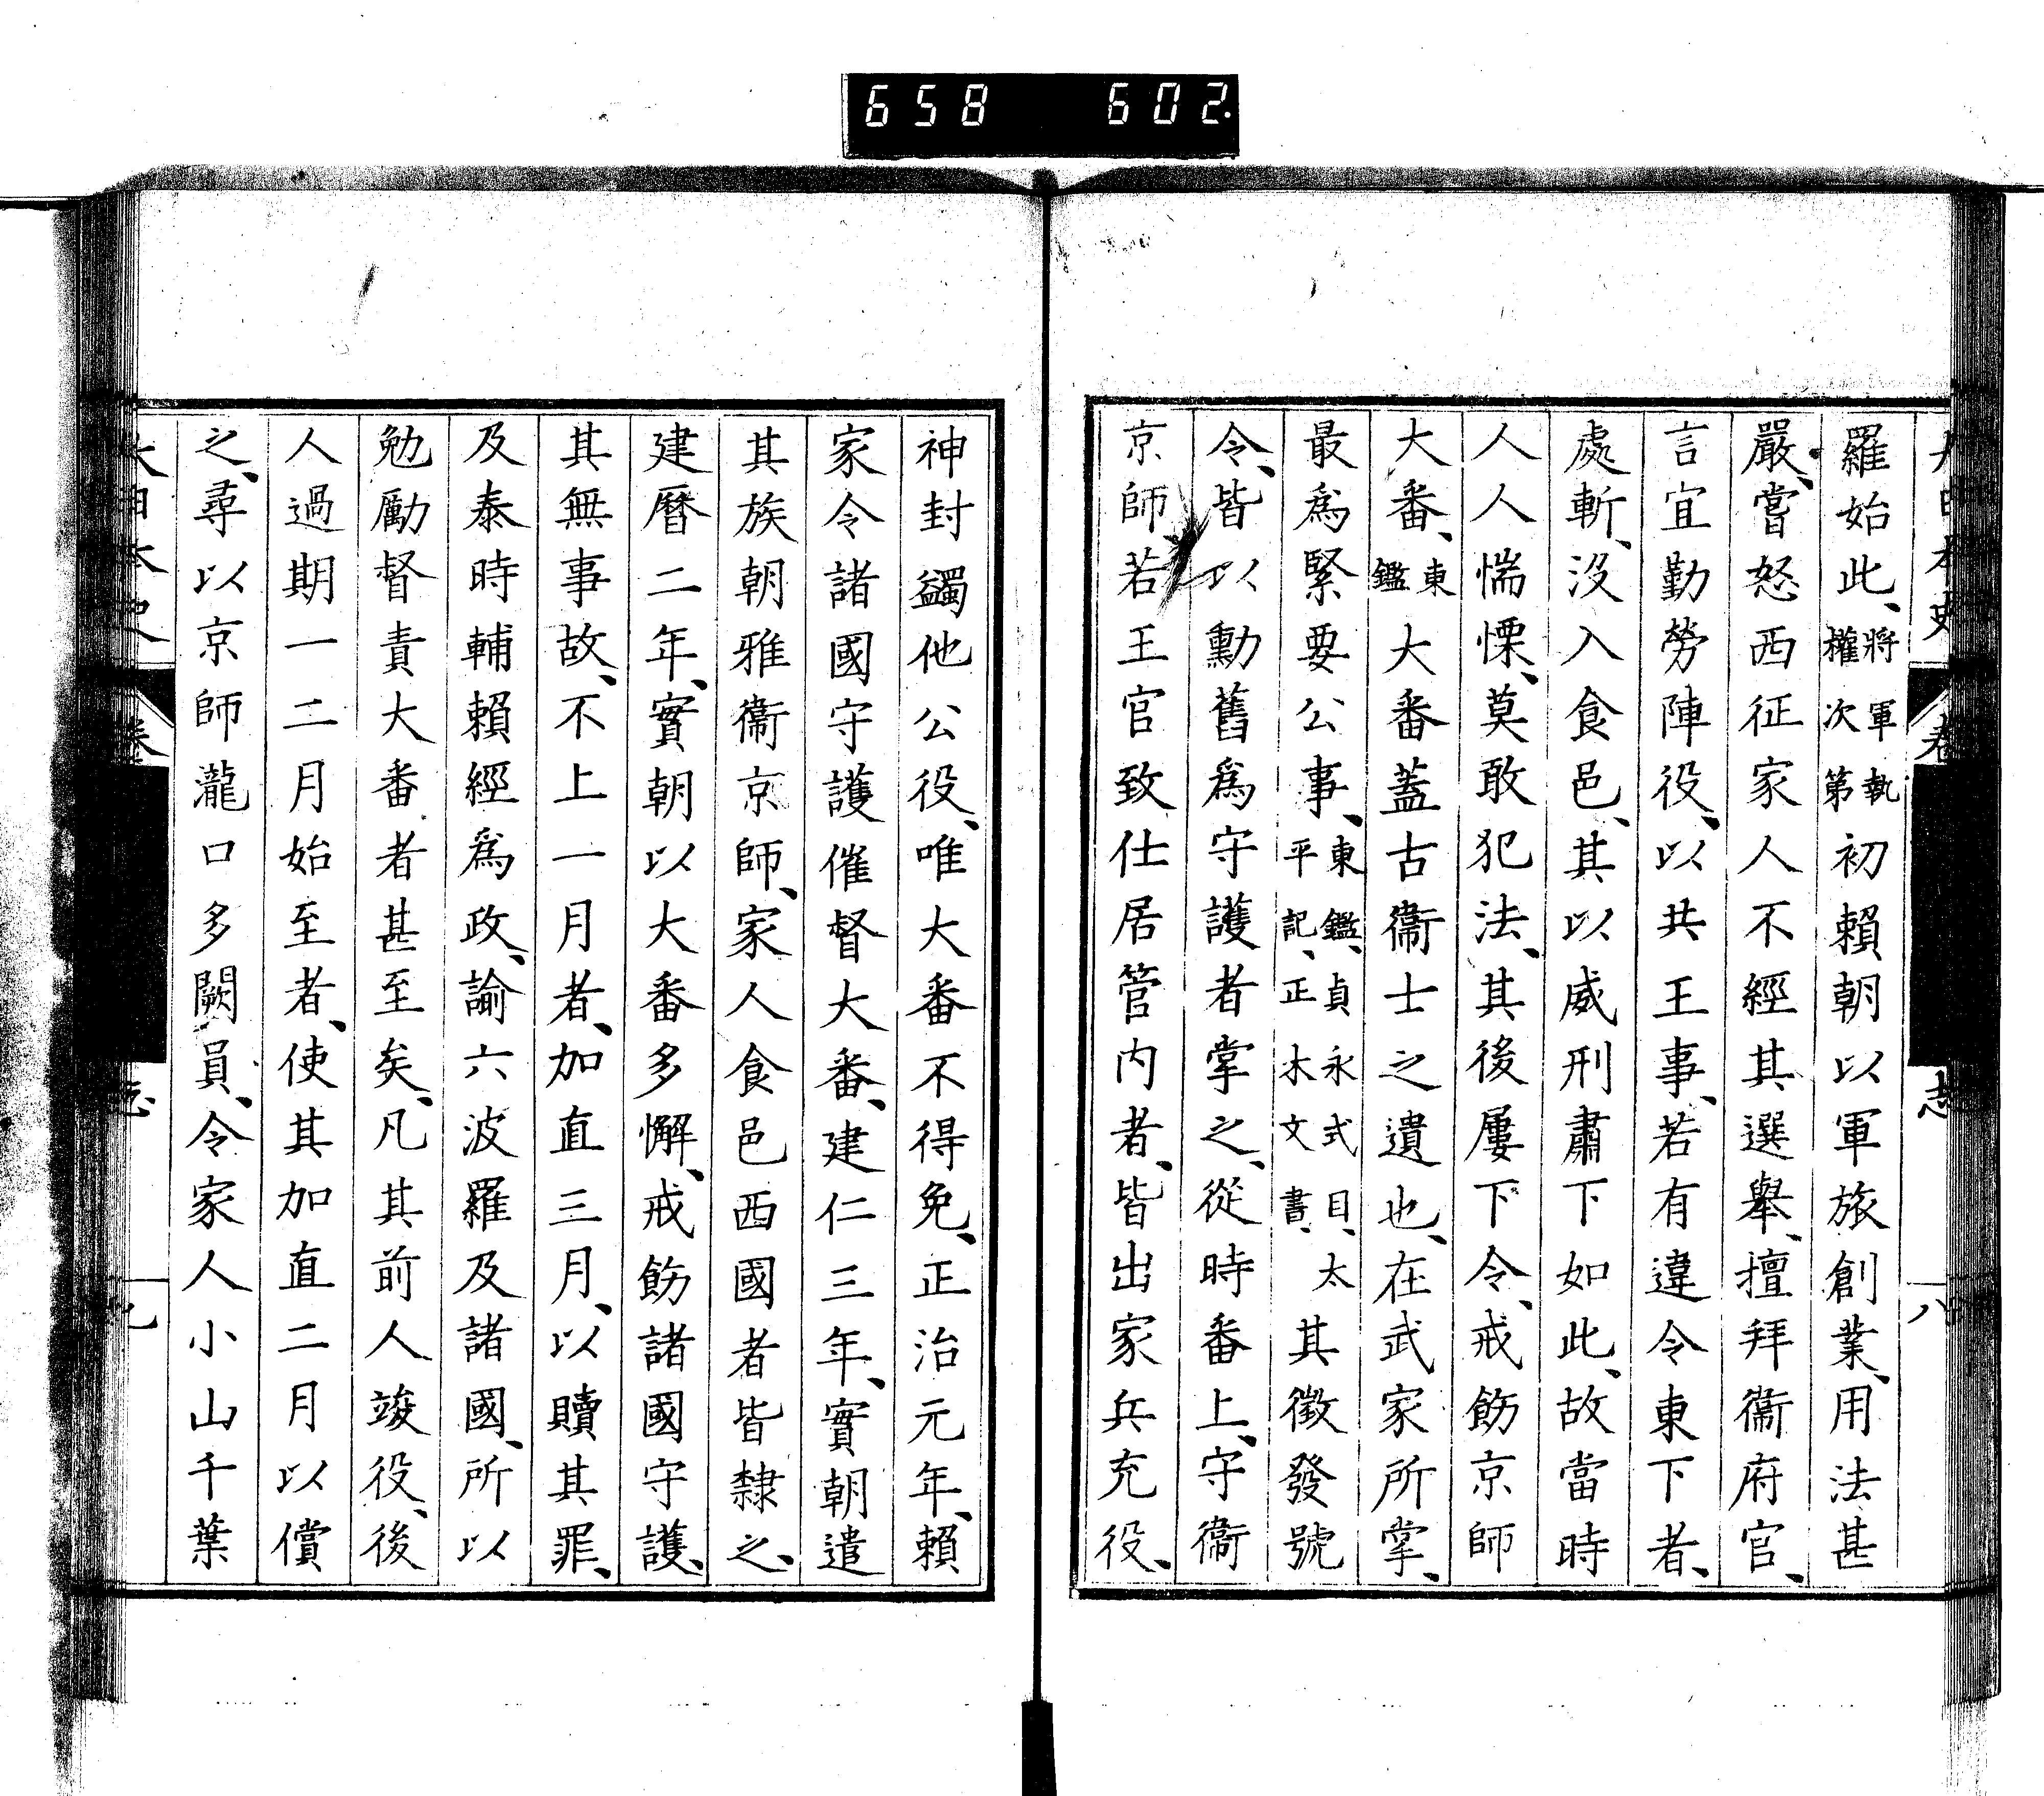 658 602.
羅始此、將軍執權次第初賴朝以軍旅創業、用法甚
嚴、嘗怒西征家人不經其選舉、擅拜衞府官、
言宜勤勞陣役、以共王事、若有違令東下者、
處斬、沒入食邑、其以威刑肅下如此、故當時
人人惴慄、莫敢犯法、其後屢下令、戒飭京師
大番、東鑑大番蓋古衞士之遺也、在武家所掌、
最爲緊要公事、東鑑、貞永式目、太平記、正木文書、其徵發號
令、皆以勳舊爲守護者掌之、從時番上、守衞
京師、若王官致仕居管内者、皆出家兵充役、
神封蠲他公役、唯大番不得免、正治元年、賴
家令諸國守護催督大番、建仁三年、實朝遣
其族朝雅衞京師、家人食邑西國者皆隸之、
建曆二年、實朝以大番多懈、戒飭諸國守護、
其無事故、不上一月者、加直三月、以贖其罪、
及泰時輔賴經爲政、諭六波羅及諸國、所以
勉勵督責大番者甚至矣、凡其前人竣役、後
人過期一二月始至者、使其加直二月以償
之、尋以京師瀧口多闕員、令家人小山千葉
大日本史
志
九